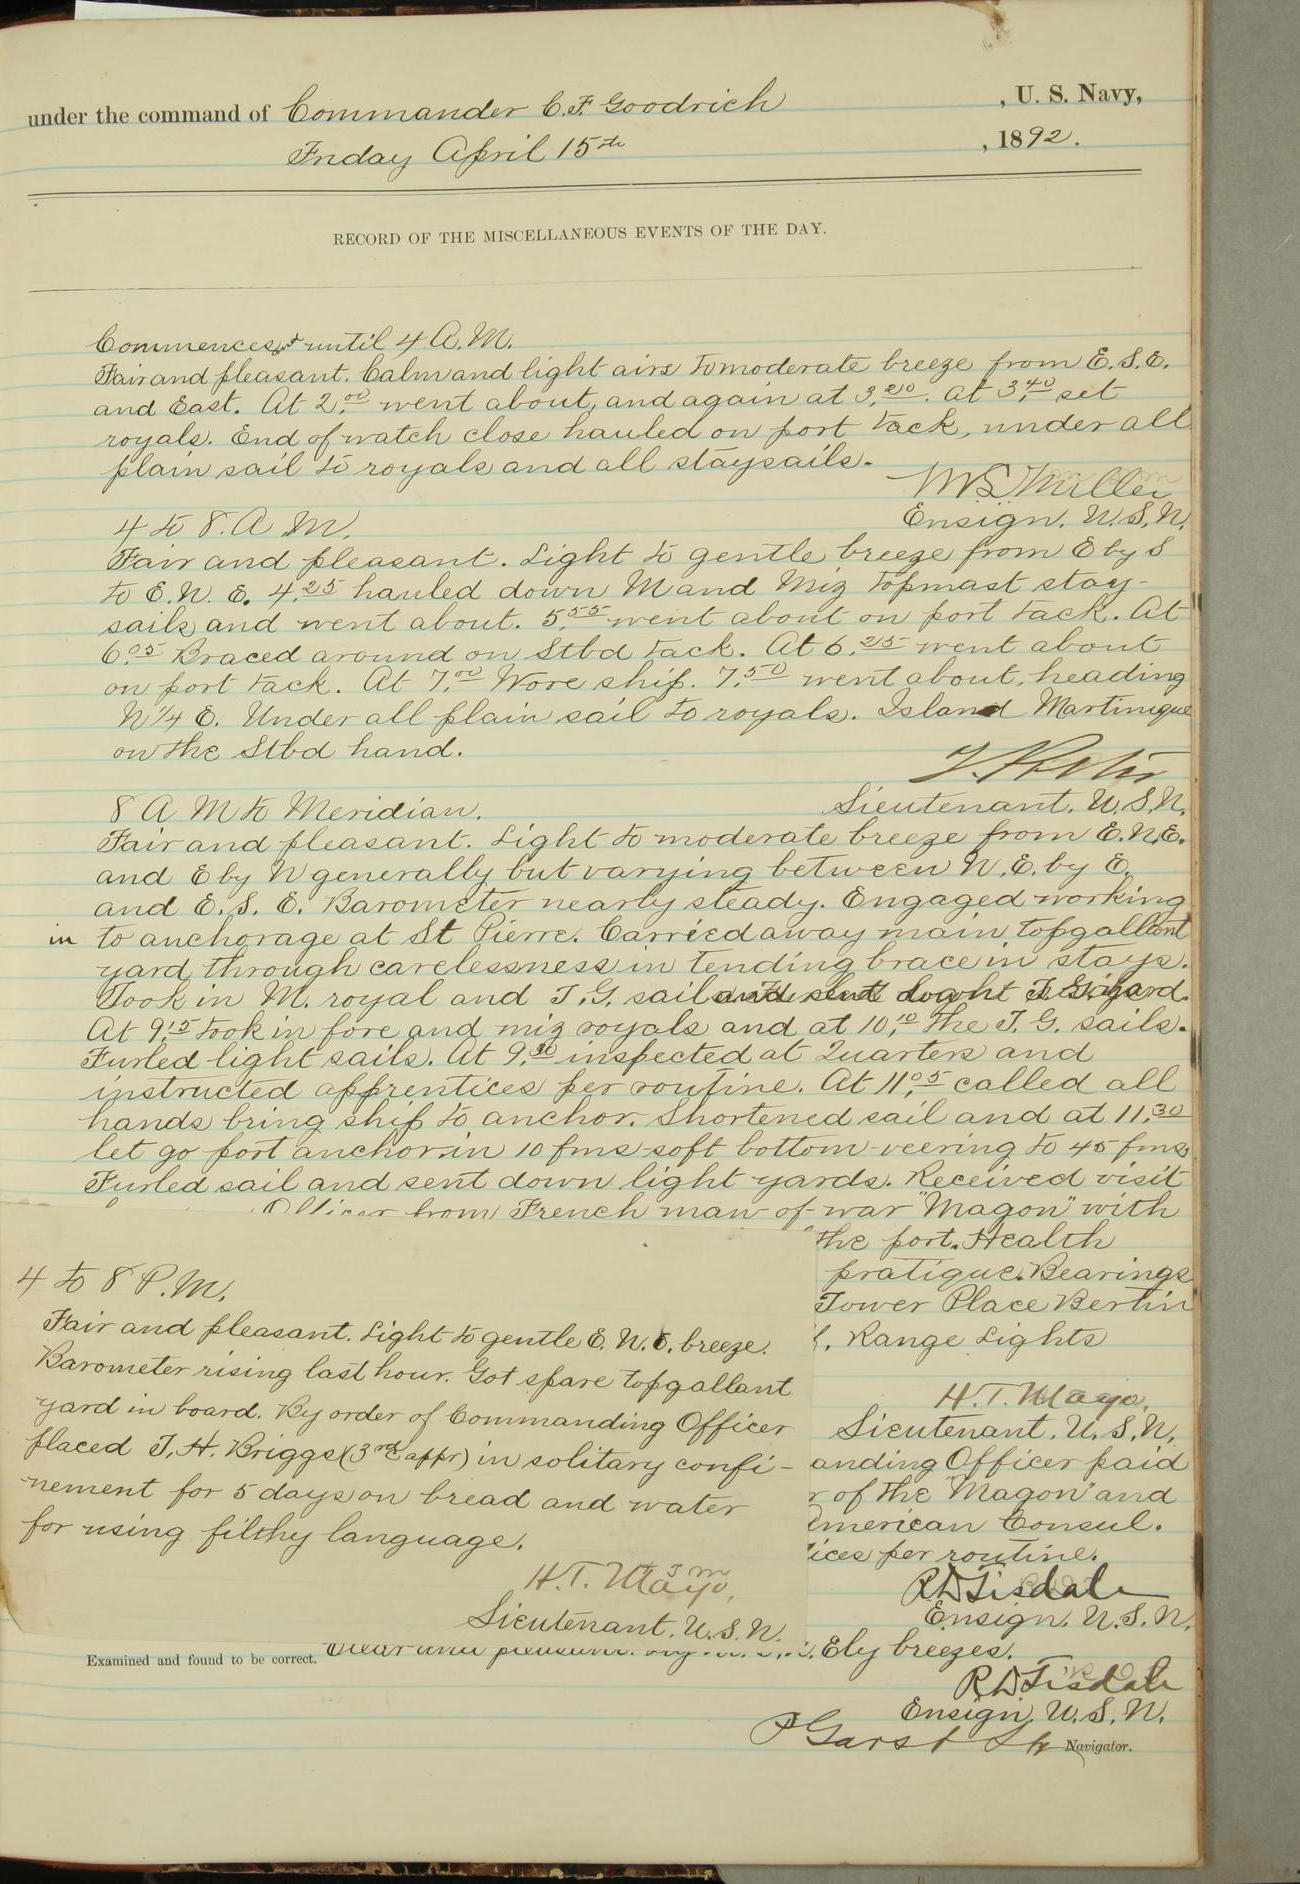 under the command of Commander C. F. Goodrich , U. S. Navy,
Friday April 15th , 1892.
RECORD OF THE MISCELLANEOUS EVENTS OF THE DAY.
Commences & until 4 A.M.
Fair and pleasant. Calm and light airs to moderate breeze from E.S.E.
and East. At 2.00 went about, and again at 3.20. At 3.40 set
royals. End of watch close hauled on port tack, under all
plain sail to royals and all staysails.
Miller
Ensign. U.S.N.
4 to 8. A.M.
Fair and pleasant. Light to gentle breeze from E by S
to E.N.E. 4.25 hauled down M and Miz topmast stay-
sails and went about. 5.55 went about on port tack. At
6.05 Braced around on Stbd tack. At 6.25 went about
on port tack. At 7.00 Wore ship. 7.50 went about, heading
N 1/4 E. Under all plain sail to royals. Island Martinique
on the Stbd hand.
Lieutenant. U.S.N.
8 A M to Meridian.
Fair and pleasant. Light to moderate breeze from E.N.E.
and E by N generally but varying between N.E. by E.
and E.S.E. Barometer nearly steady. Engaged working
in to anchorage at St Pierre. Carried away main topgallant
yard through carelessness in tending brace in stays.
Took in M. royal and T.G. sail and sent down T.G. yard.
At 9.15 took in fore and miz royals and at 10.10 the T.G. sails.
Furled light sails. At 9.30 inspected at Quarters and
instructed apprentices per routine. At 11.05 called all
hands bring ship to anchor. Shortened sail and at 11.30
let go port anchor in 10 fms soft bottom veering to 45 fms
Furled sail and sent down light yards. Received visit
Officer from French man-of-war "Magon" with
the port. Health
pratique. Bearings
Tower Place Bertin
Range Lights
H.T. Mayo,
Lieutenant. U.S.N.
anding Officer paid
r of the "Magon" and
American Consul.
ices per routine.
R D Tisdale
Ensign. U.S.N.
4 to 8 P.M.
Fair and pleasant. Light to gentle E.N.E. breeze.
Barometer rising last hour. Got spare topgallant
yard in board. By order of Commanding Officer
placed T. H. Briggs (3rd C appr) in solitary confi-
nement for 5 days on bread and water
for using filthy language.
H.T. Mayo,
Lieutenant. U.S.N.
Clear and pleasant. Ely breezes.
Examined and found to be correct.
R D Tisdale
Ensign. U.S.N.
P Garst Navigator.